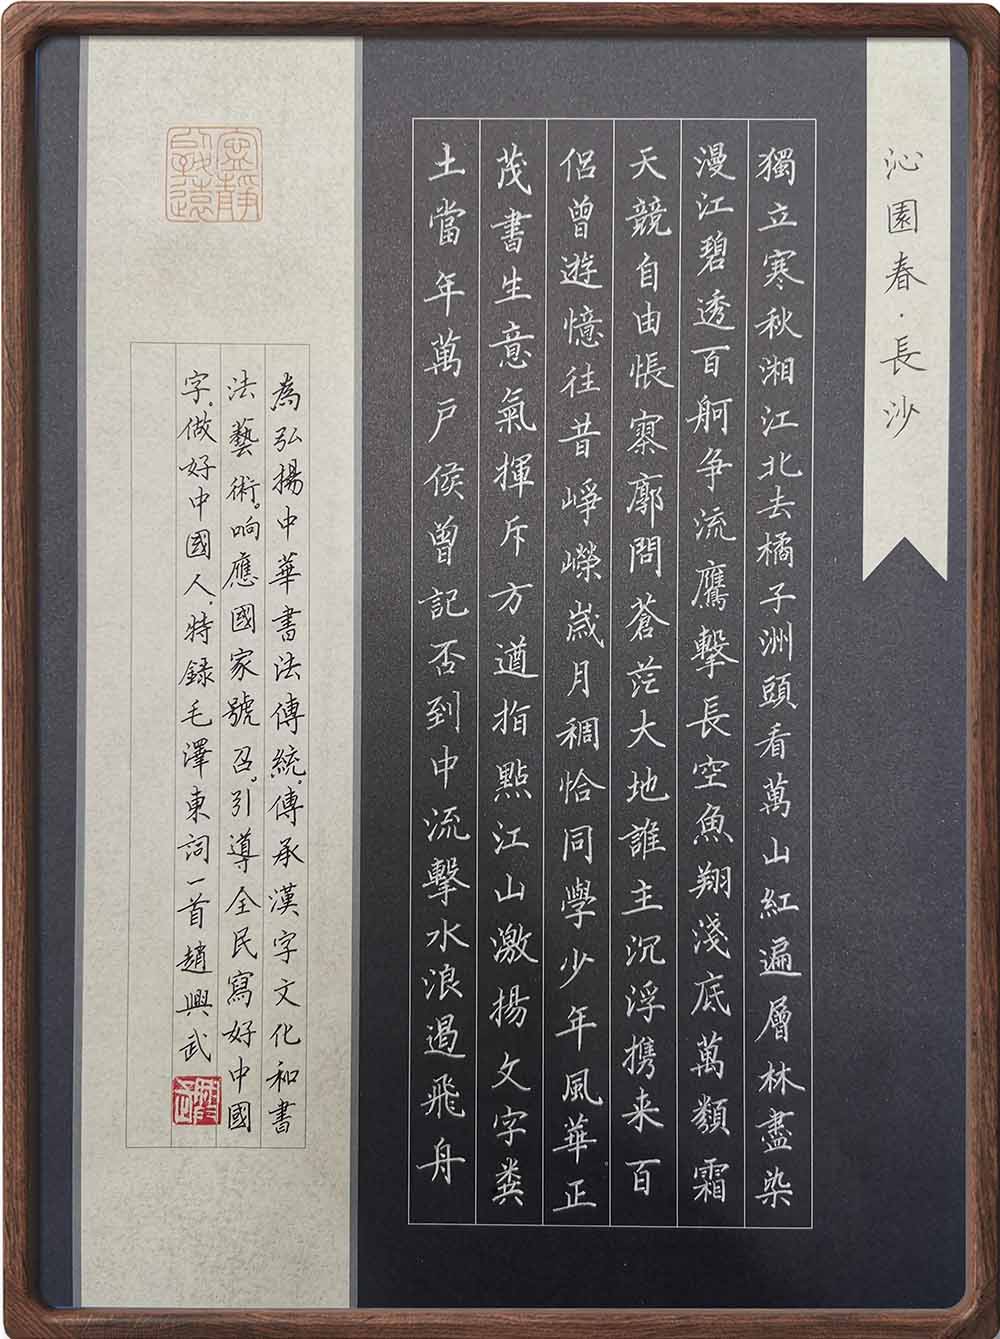 沁園春·長沙
獨立寒秋湘江北去橘子洲頭看萬山紅遍層林盡染
漫江碧透百舸争流鷹擊長空魚翔淺底萬類霜
天競自由悵寥廓問蒼茫大地誰主沉浮携来百
侣曾遊憶往昔崢嶸歲月稠恰同學少年風華正
茂書生意氣揮斥方遒指點江山激揚文字糞
土當年萬户侯曾記否到中流擊水浪遏飛舟
寧靜
致遠
為弘揚中華書法傳統,傳承漢字文化和書
法藝術。响應國家號召。引導全民寫好中國
字,做好中國人,特録毛澤東詞一首趙興武